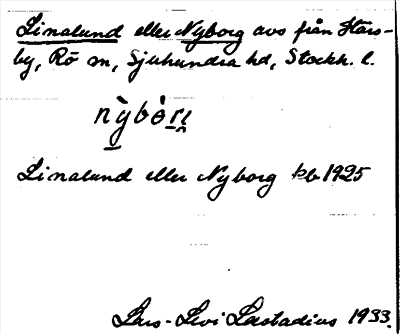 Linalund eller Nyborg avs från Hars-
by, Rö sn, Sjuhundra hd, Stockh. l.
nỳbòrı̯
Linalund eller Nyborg kb 1925
Lars-Levi Læstadius 1933.